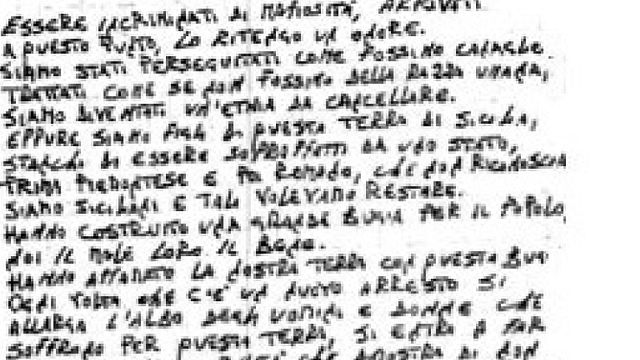 ESSERE INCRIMINATI DI MAFIOSITÀ, ARRIVATI
A QUESTO PUNTO, LO RITENGO UN ONORE.
SIAMO STATI PERSEGUITATI COME FOSSIMO CANAGLIE
TRATTATI COME SE NON FOSSIMO DELLA RAZZA UMANA,
SIAMO DIVENTATI UN'ETNIA DA CANCELLARE.
EPPURE SIAMO FIGLI DI QUESTA TERRA DI SICILIA,
STANCHI DI ESSERE SOPRAFFATTI DA UNO STATO,
PRIMA PIEMONTESE E POI ROMANO, CHE NON RICONOSCIA
SIAMO SICILIANI E TALI VOLEVAMO RESTARE.
HANNO COSTRUITO UNA GRANDE BUGIA PER IL POPOLO,
NOI IL MALE LORO IL BENE.
HANNO AFFAMATO LA NOSTRA TERRA CON QUESTA BUGI
OGNI VOLTA CHE C'È UN NUOVO ARRESTO SI
ALLARGA L'ALBO DEGLI UOMINI E DONNE CHE
SOFFRONO PER QUESTA TERRA, SI ENTRA A FAR
CHE MOSTRA DI NON